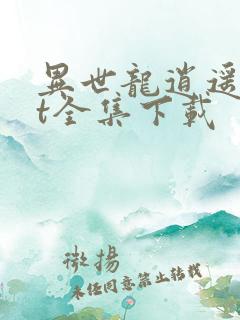 異世龍逍遥
t全集下載
微揚
未经同意禁止转载